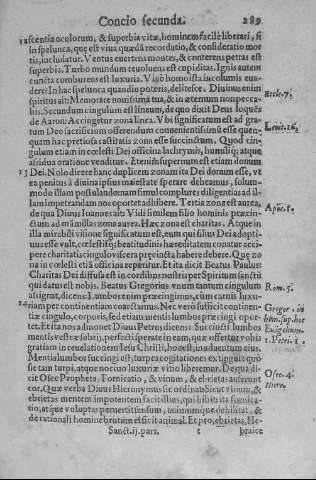 Concio secunda. 289
12 ascentia oculorum, & superbia vitæ, hominem facilè libetari, si
in spelunca, quæ est viua quædã recordatio, & consideratio mor
tis, includatur. Ventus euertens montes, & conterens petras est
superbia. Turbo mundum reuoluens est cupiditas. Ignis autem
cuncta comburens est luxuria. Visò homo ista iucolumis eua-
dere? In hac spelunca quandiu poteris, delitesce. Diuinus enim
spiritus ait: Memorare nouissima tua, & in æternum non pecca-
bis. Secundum cingulum est lineum, de quo dixit Deus loquẽs
de Aaron: Accingetur zona linea. Vbi significatum est ad gra-
tum Deo sacrificium offerendum conuenientissimũ esse quen-
quam hac pretiosa castitatis zona esse succinctum. Quod cin-
gulum etiam in cælesti Dei officina lachrymis, humili; atque
assidua oratione venditur. Etenim superum est etiam donum
13 Dei. Nolo dicere hanc duplicem zonam ita Dei donum esse, vt
ea penitus à diuina ipsius maiestate sperare debeamus, solum-
modo illam postulando: nam simul complures diligentias ad il-
lam impetrandam nos oportet adhibere. Tertia zona est aurea,
de qua Diuus Ioannes ait: Vidi similem filio hominis præcin-
ctum ad mãmillas zona aurea. Hæc zona est charitas. Atque in
illa mirabili visione significatum est, eum qui filius Dei adopti-
uus esse vult, cælestisq́; beatitudinis hæreditatem conatur acci-
pere charitatis cingulo viscera præcincta habere debere. Quæ zo
na in cælesti etiã officina reperitur. Et ita dicit Beatus Paulus:
Charitas Dei diffusa est in cordibus nostris per Spiritum sanctũ
qui datus est nobis. Beatus Gregorius vnum tantum cingulum
assignat, dicens: Lumbos enim præcingimus, cùm carnis luxu-
14 riam per continentiam coarctamus. Nec verò sufficit continen-
tiæ cingulo, corporis, sed etiam mentis lumbos præcingi opor-
tet. Et ita nos admonet Diuus Petrus dicens: Succincti lumbos
mentis vestræ sobrij, perfectè sperate in eam, quæ offertur vobis
gratiam in reuelationem Iesu Christi, hoc est, in aduentum eius.
Mentis lumbos succingi est, turpes cogitationes extingui: quò
sic tam turpi, atque nociuo luxuriæ vitio liberemur. De qua di-
cit Osee Propheta: Fornicatio, & vinum, & ebrietas auferunt
cor. Quæ verba Diuus Hieronymus sic ordinat: Sicut vinum, &
ebrietas mentem impotentem facit illius, qui bibit: ita fornica-
tio, atque voluptas peruertit sensum, animumque debilitat, &
de rationali homine brutum efficit animal. Et pro, ebrietas, He-
Sanct. ij. pars. t braicè
Eccle. 7.
Leuit. 16.
Apoc. 1.
Rom. 5.
Gregor. in
hom. sup. hoc
Euãgelium.
1. Petri 1.
Osee. 4.
Hiero.